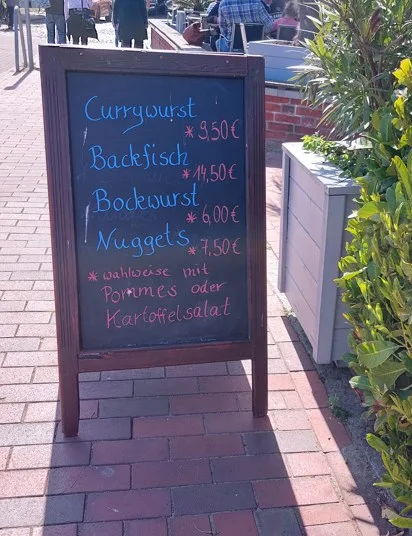 Currywurst
* 9,50€
Backfisch
* 14,50€
Bockwurst
* 6,00€
Nuggets
* 7,50€
* wahlweise mit
Pommes oder
Kartoffelsalat